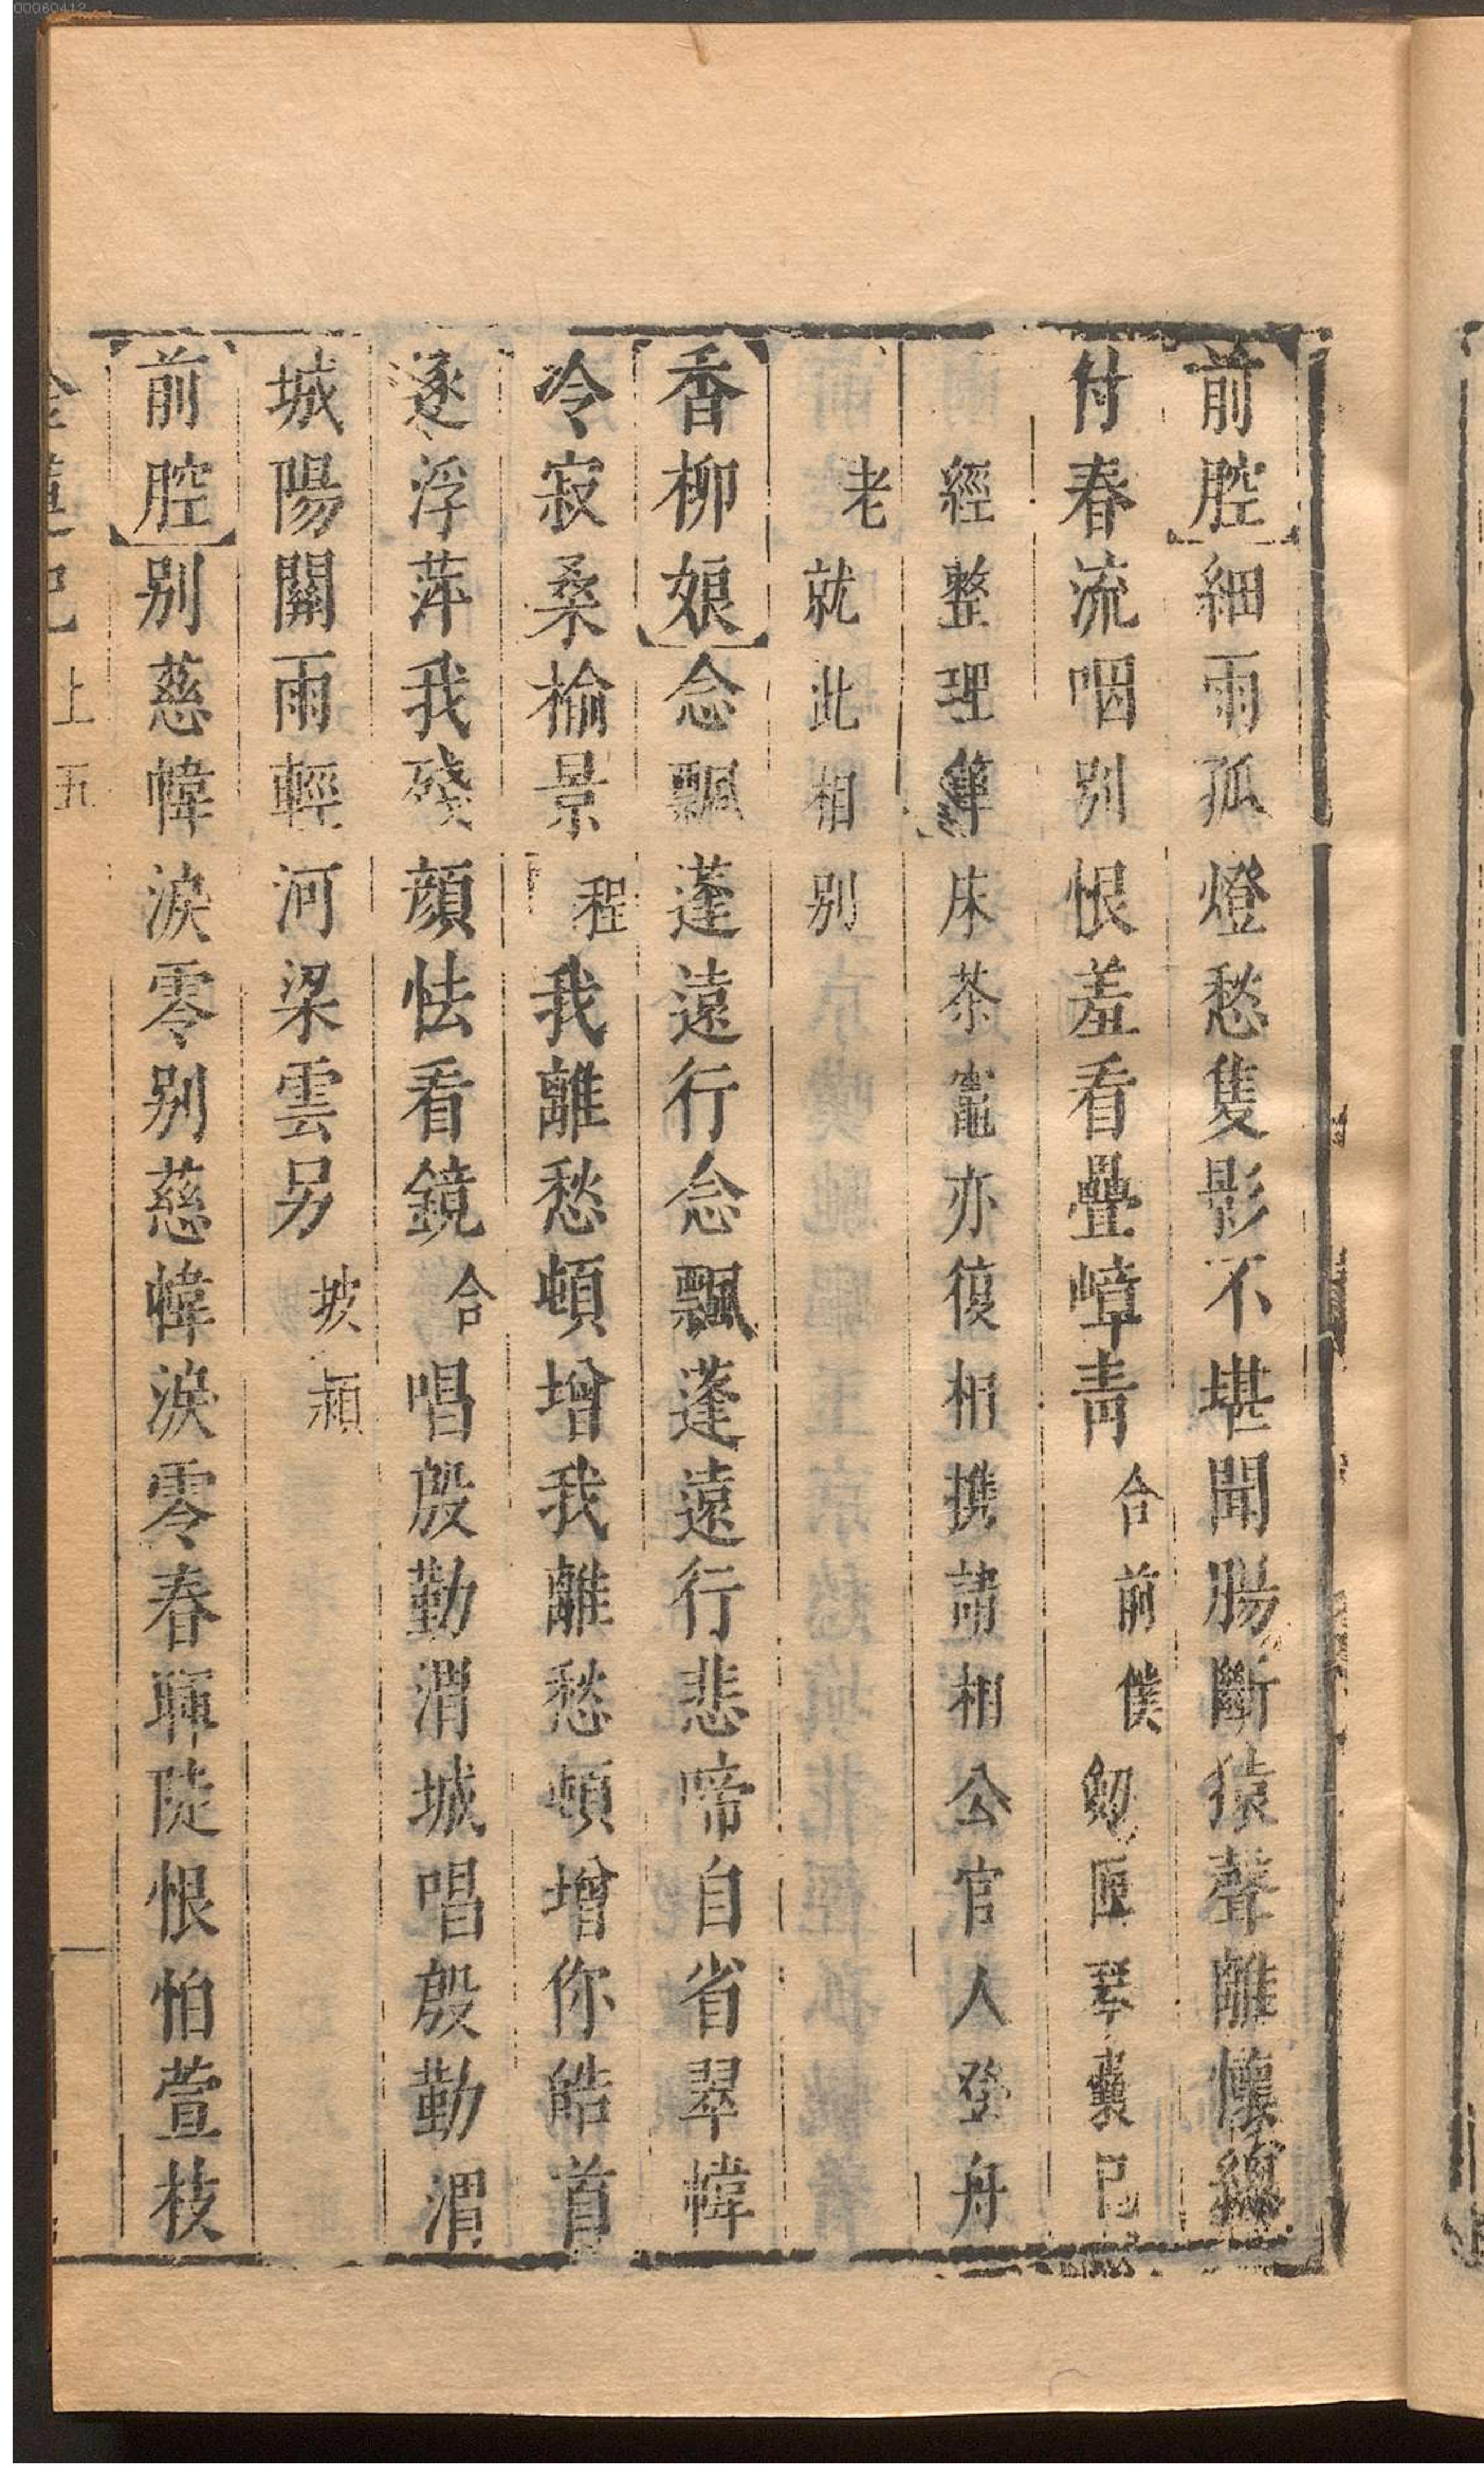 前腔細雨孤燈愁隻影不堪聞腸斷猿聲離懷總
付春流咽別恨羞看疊嶂青合前僕劒匣琴囊已
經整理筆床茶竈亦復相携請相公官人登舟
老就此相別
香柳娘念飄蓬遠行念飄蓬遠行悲啼自省翠幃
冷寂桑榆景程我離愁頓增我離愁頓增你皓首
逐浮萍我殘顔怯看鏡合唱殷勤渭城唱殷勤渭
城陽關雨輕河梁雲另坡潁
前腔別慈幃淚零別慈幃淚零春暉陡恨怕萱枝
上五
00060412